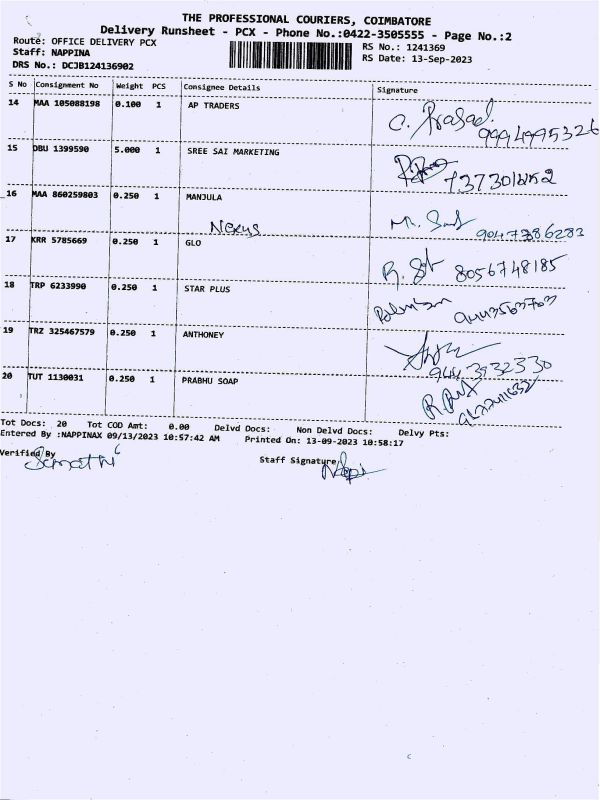 THE PROFESSIONAL COURIERS, COIMBATORE
Delivery Runsheet - PCX - Phone No.:0422-3505555 - Page No.:2
Route: OFFICE DELIVERY PCX
RS No.: 1241369
Staff: NAPPINA
RS Date: 13-Sep-2023
DRS No.: DCJB124136902
S No Consignment No Weight PCS Consignee Details Signature
14 MAA 105088198 0.100 1 AP TRADERS
C. Prasad
9994995326
15 DBU 1399590 5.000 1 SREE SAI MARKETING
16 MAA 860259803 0.250 1 MANJULA
Nexus
17 KRR 5785669 0.250 1 GLO
8056748185
18 TRP 6233990 0.250 1 STAR PLUS
19 TRZ 325467579 0.250 1 ANTHONEY
20 TUT 1130031 0.250 1 PRABHU SOAP
Tot Docs: 20 Tot COD Amt: 0.00 Delvd Docs: Non Delvd Docs: Delvy Pts:
Entered By :NAPPINAX 09/13/2023 10:57:42 AM Printed On: 13-09-2023 10:58:17
Verified By
Staff Signature